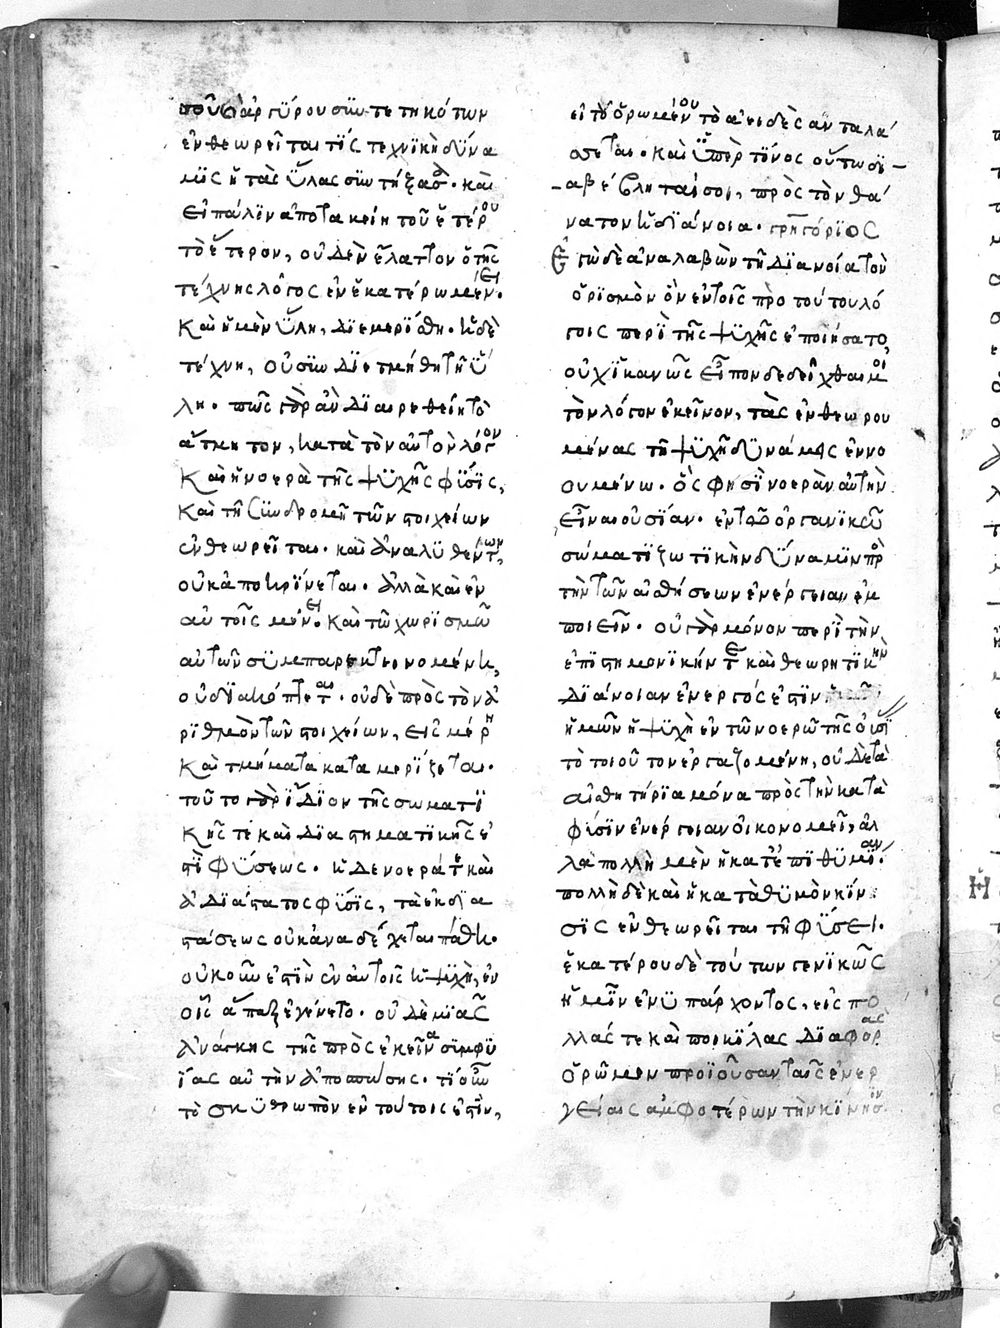 τοῦ ἀργύρου συντετηκότων
ἐνθεωρεῖται τῆς τεχνικὴ δύνα
μϊς ἡ τὰς ὕλας συντήξασα· καὶ
εἰ πάλϊν ἀποτακείη τοῦ ἑτέρου
τὸ ἕτερον, οὐδὲν ἔλαττον ὁ τῆς
τέχνης λόγος ἐν ἑκατέρω μένει·
Καὶ ἡ μὲν ὕλη, διεμερίσθη· ἡ δὲ
τέχνη, οὐ συνδιετμήθη τῆ ὕ
λη· πῶς γὰρ ἂν διαιρεθείη τὸ
ἄτμητον, κατὰ τὸν αὐτὸν λόγον
Καὶ ἡ νοερὰ τῆς ψυχῆς φύσις,
Καὶ τῆ συνδρομῆ τῶν στοιχείων
ἐνθεωρεῖται· καὶ ἀναλυθέντων,
οὐκ ἀποκρίνεται· ἀλλὰ καὶ ἐν
αὐτοῖς μένει· Καὶ τῶ χωρισμῶ
αὐτῶν συμπαρεκτεινομένη,
οὐ διακόπτεται· οὐδὲ πρὸς τὸν ἀ
ριθμὸν τῶν στοιχείων, εἰς μέρη
Καὶ τμήματα καταμερίζεται·
τοῦτο γὰρ ἴδιον τῆς σωματι
κῆς τὲ καὶ διαστηματικῆς ἐ
στὶ φύσεως· ἡ δὲ νοερά τε καὶ
ἀδιάστατος φύσις, τὰ ἐκ δια
στάσεως οὐκ ἀναδέχεται πάθη·
οὐκοῦν ἐστὶν ἐν αὐτοῖς ἡ ψυχὴ, ἐν
οἷς ἅπαξ ἐγένετο· οὐδεμιᾶς
ἀνάγκης τῆς πρὸς ἐκεῖνα συμφυ
ΐας αὐτὴν ἀποσπώσης· τί οὖν
τὸ σκυθρωπὸν ἐν τούτοις ἐστὶν,
εἰ τὸ ὁρώμενον τὸ ἀειδὲς ἀνταλά
σεται· καὶ ὑπὲρ τίνος οὕτω δι
αβέβληταί σοι, πρὸς τὸν θά
νατον ἡ διάνοια· γρηγόριος
Ἐγὼ δὲ ἀναλαβὼν τῆ διανοία τὸν
ὁρισμὸν ὃν ἐν τοῖς πρὸ τούτου λό
γοις περὶ τῆς ψυχῆς ἐποιήσατο,
οὐχ ἱκανῶς εἶπον δεδεῖχθαι μοι
τὸν λόγον ἐκεῖνον, τὰς ἐνθεωρου
μένας τῆ ψυχῆ δυνάμεις ἐννο
ουμένω· ὃς φησὶ νοερὰν αὐτὴν
εἶναι οὐσίαν· ἐν τῶ ὀργανικῶ
σώματι ζωτικὴν δύναμιν πρὸς
τὴν τῶν αἰσθήσεων ἐνέργειαν ἐμ
ποιεῖν· οὐ γὰρ μόνον περὶ τὴν
ἐπιστημονικήν τε καὶ θεωρητικὴν
διάνοιαν ἐνεργός ἐστιν
ἡμῶν ἡ ψυχὴ ἐν τῶ νοερῶ τῆς οὐσί
τὸ τοιοῦτον ἐργαζομένη, οὐδὲ τὰ
αἰσθητήρια μόνα πρὸς τὴν κατὰ
φύσιν ἐνέργειαν οἰκονομεῖ, ἀλ
λὰ πολλὴ μὲν ἡ κατ' ἐπιθυμίαν·
πολλὴ δὲ καὶ ἡ κατὰ θυμὸν κίν
σις ἐνθεωρεῖται τῆ φύσει·
ἑκατέρου δὲ τούτων γενικῶς
ἡμῖν ἐνυπάρχοντος, εἰς πο
λλάς τε καὶ ποικίλας διαφορὰς
ὁρῶμεν προϊοῦσαν ταῖς ἐνερ
γείαις ἀμφοτέρων τὴν κίνησιν